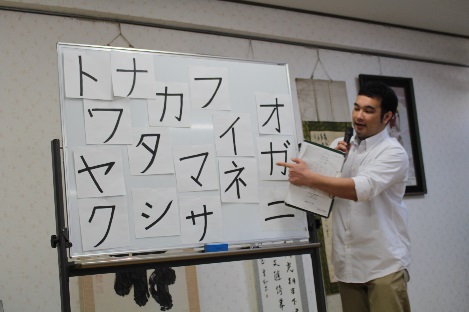 トナカフオ
ワタイガ
ヤマネ
クシサニ